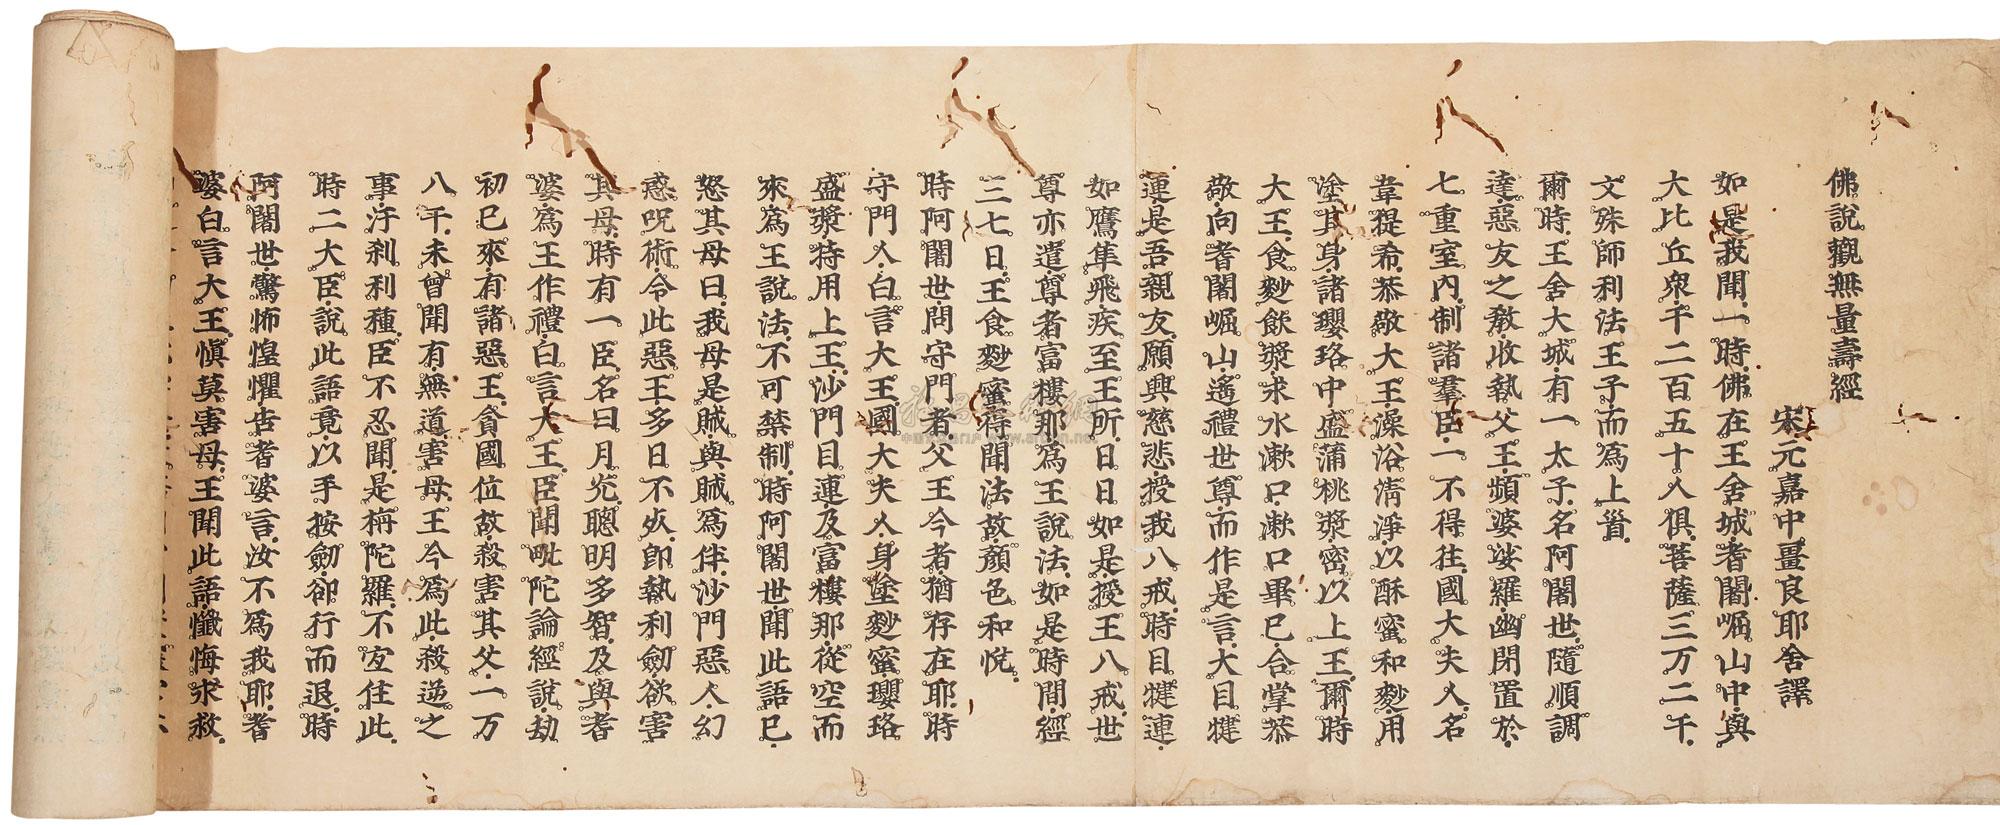 佛說觀無量壽經
宋元嘉中畺良耶舍譯
如是我聞一時佛在王舍城耆闍崛山中與
大比丘衆千二百五十人俱菩薩三万二千
文殊師利法王子而為上首
爾時王舍大城有一太子名阿闍世隨順調
達惡友之教收執父王頻婆娑羅幽閉置於
七重室內制諸羣臣一不得往國大夫人名
韋提希恭敬大王澡浴清淨以酥蜜和麨用
塗其身諸瓔珞中盛蒲桃漿密以上王爾時
大王食麨飲漿求水漱口漱口畢已合掌恭
敬向耆闍崛山遙禮世尊而作是言大目犍
連是吾親友願興慈悲授我八戒時目犍連
如鷹隼飛疾至王所日日如是授王八戒世
尊亦遣尊者富樓那為王說法如是時間經
三七日王食麨蜜得聞法故顏色和悅
時阿闍世問守門者父王今者猶存在耶時
守門人白言大王國大夫人身塗麨蜜瓔珞
盛漿持用上王沙門目連及富樓那從空而
來為王說法不可禁制時阿闍世聞此語已
怒其母曰我母是賊與賊為伴沙門惡人幻
惑呪術令此惡王多日不死卽執利劒欲害
其母時有一臣名曰月光聰明多智及與耆
婆為王作禮白言大王臣聞毗陀論經說劫
初已來有諸惡王貪國位故殺害其父一万
八千未曾聞有無道害母王今為此殺逆之
事汙刹利種臣不忍聞是栴陀羅不宜住此
時二大臣說此語竟以手按劒卻行而退時
阿闍世驚怖惶懼告耆婆言汝不為我耶耆
婆白言大王慎莫害母王聞此語懺悔求救